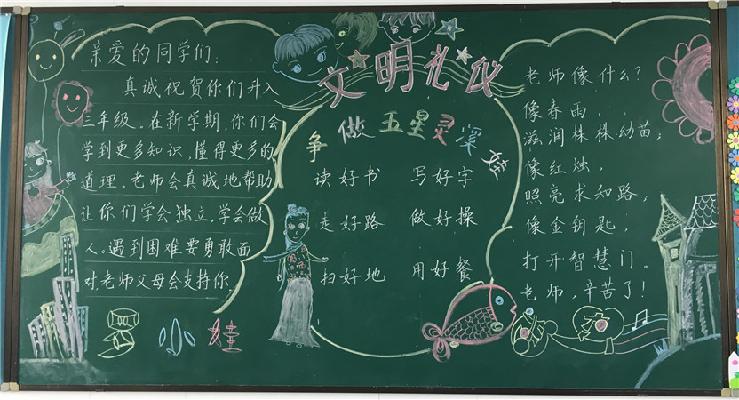 亲爱的同学们:
真诚祝贺你们升入
三年级。在新学期,你们会
学到更多知识,懂得更多的
道理。老师会真诚地帮助
让你们学会独立,学会做
人。遇到困难要勇敢面
对老师父母会支持你。
小娃
文明礼仪
争做五星灵溪娃
读好书 写好字
走好路 做好操
扫好地 用好餐
老师像什么?
像春雨,
滋润株株幼苗;
像红烛,
照亮求知路,
像金钥匙,
打开智慧门。
老师,辛苦了!